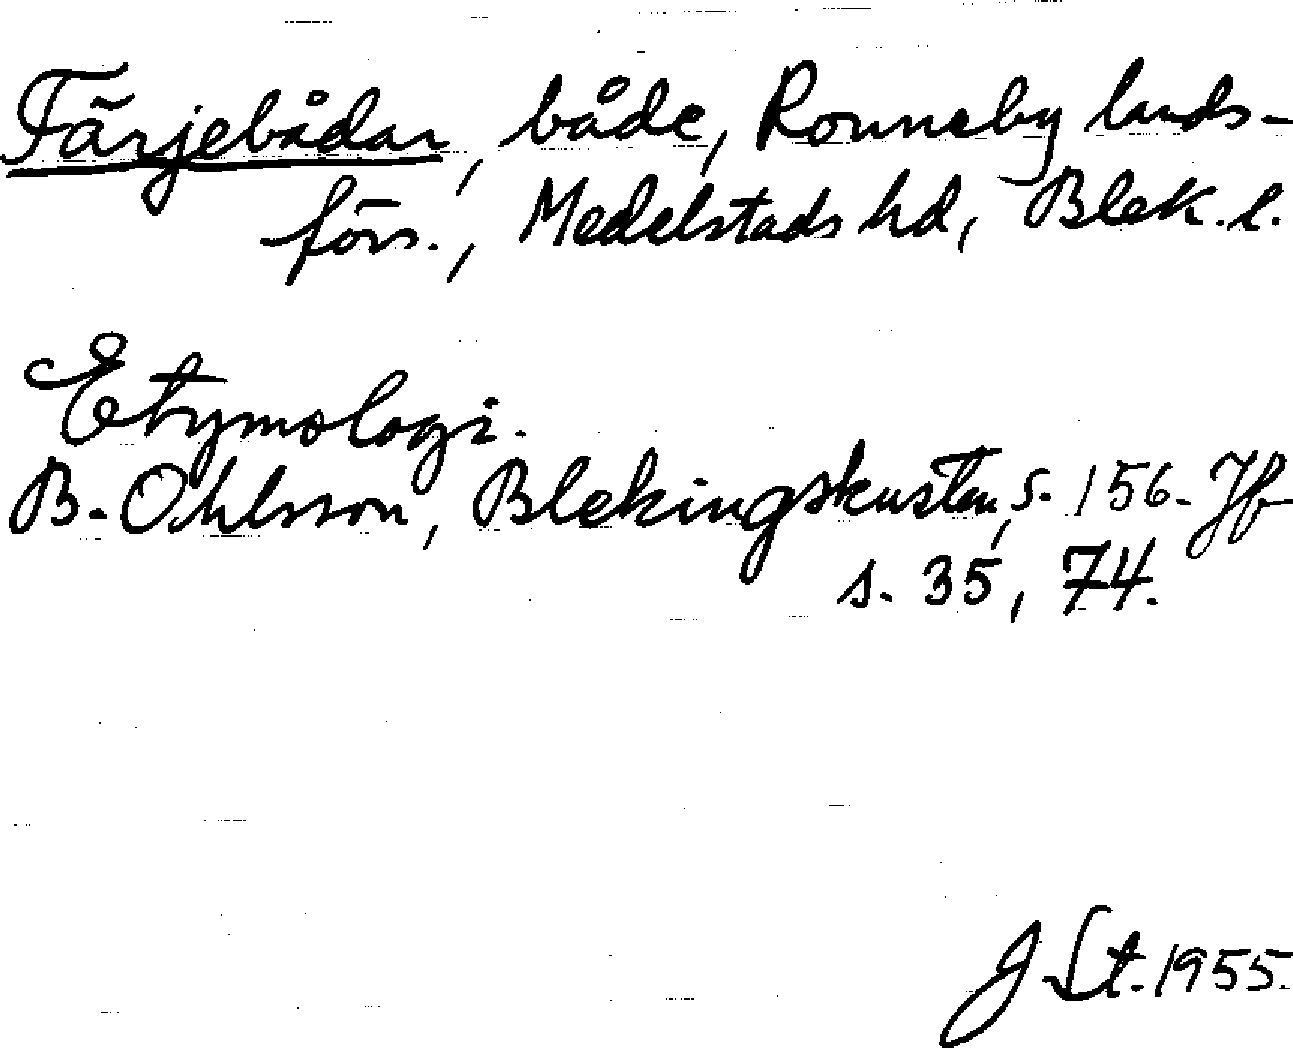 Färjebådar, både, Ronneby lands-
förs., Medelstads hd, Blek. l.
Etymologi.
B. Ohlsson, Blekingskusten, s. 156. Jfr
s. 35, 74.
J St. 1955.